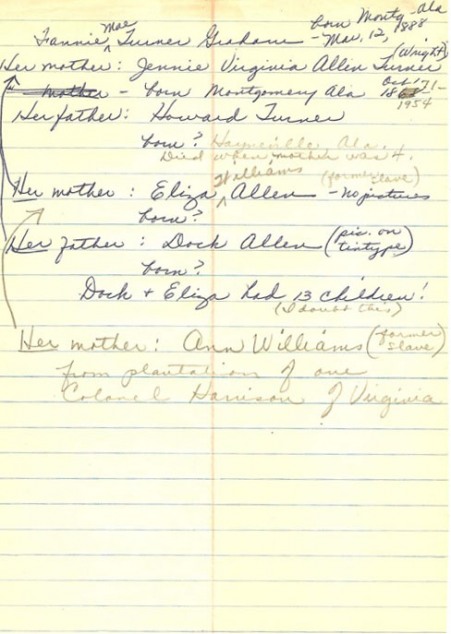 born Montg - Ala
Fannie Mae Turner Graham - Mar. 12, 1888
(Wright)
Her mother: Jennie Virginia Allen Turner
mother - born Montgomery Ala Oct '71 -
1954
Her father: Howard Turner
born? Hayneville, Ala.
Died when mother was 4.
Williams (former slave)
Her mother: Eliza Allen - no pictures
born?
Her father: Dock Allen (pic. on tintype)
born?
Dock + Eliza had 13 children!
(I doubt this)
Her mother: Ann Williams (former slave)
from plantation of one
Colonel Harrison of Virginia